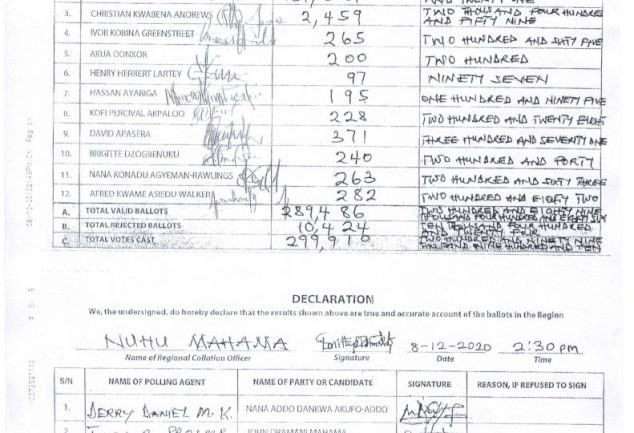 3. CHRISTIAN KWABENA ANDREWS 2,459 TWO THOUSAND FOUR HUNDRED
AND FIFTY NINE
4. IVOR KOBINA GREENSTREET 265 TWO HUNDRED AND SIXTY FIVE
5. AKUA DONKOR 200 TWO HUNDRED
6. HENRY HERBERT LARTEY 97 NINETY SEVEN
7. HASSAN AYARIGA 195 ONE HUNDRED AND NINETY FIVE
8. KOFI PERCIVAL AKPALOO 228 TWO HUNDRED AND TWENTY EIGHT
9. DAVID APASERA 371 THREE HUNDRED AND SEVENTY ONE
10. BRIGITTE DZOGBENUKU 240 TWO HUNDRED AND FORTY
11. NANA KONADU AGYEMAN-RAWLINGS 263 TWO HUNDRED AND SIXTY THREE
12. AFRED KWAME ASIEDU WALKER 282 TWO HUNDRED AND EIGHTY TWO
A. TOTAL VALID BALLOTS 289,486 TWO HUNDRED AND EIGHTY NINE
THOUSAND FOUR HUNDRED AND EIGHTY SIX
B. TOTAL REJECTED BALLOTS 10,424 TEN THOUSAND FOUR HUNDRED
AND TWENTY FOUR
C. TOTAL VOTES CAST 299,910 TWO HUNDRED AND NINETY NINE
THOUSAND NINE HUNDRED AND TEN
DECLARATION
We, the undersigned, do hereby declare that the results shown above are true and accurate account of the ballots in the Region
NUHU MAHAMA 8-12-2020 2:30pm
Name of Regional Collation Officer Signature Date Time
S/N NAME OF POLLING AGENT NAME OF PARTY OR CANDIDATE SIGNATURE REASON, IF REFUSED TO SIGN
1. DERRY DANIEL M.K. NANA ADDO DANKWA AKUFO-ADDO
JOHN DRAMANI MAHAMA